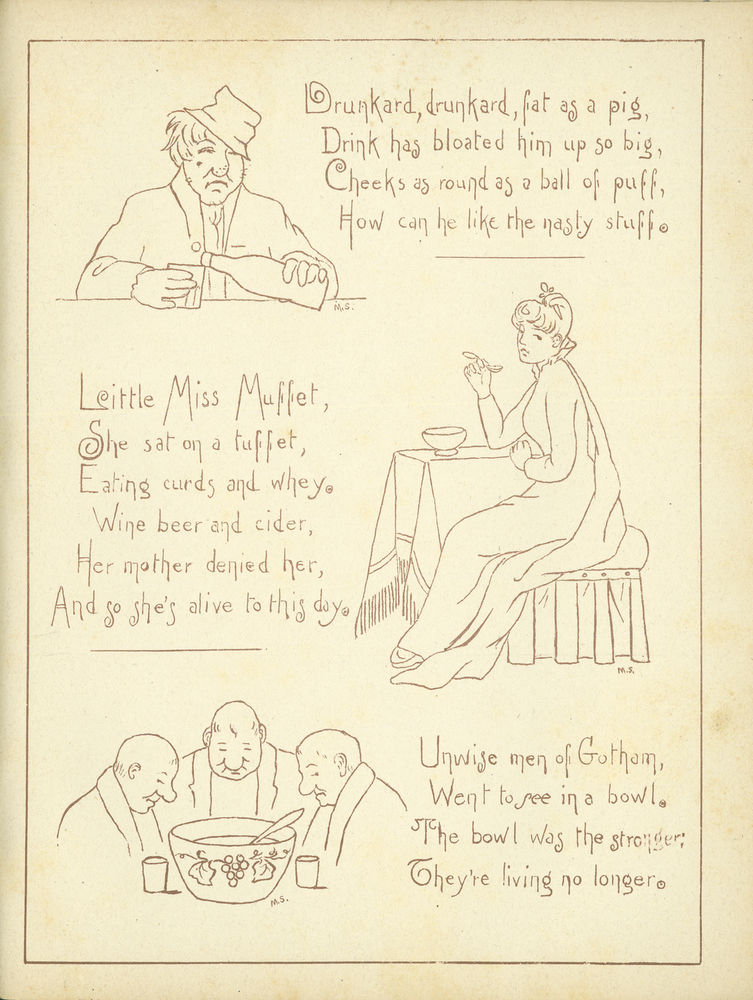 Drunkard, drunkard, fat as a pig,
Drink has bloated him up so big,
Cheeks as round as a ball of puff,
How can he like the nasty stuff.
M.S.
Little Miss Muffet,
She sat on a tuffet,
Eating curds and whey.
Wine beer and cider,
Her mother denied her,
And so she's alive to this day.
M.S.
Unwise men of Gotham,
Went to see in a bowl.
The bowl was the stronger;
They're living no longer.
M.S.